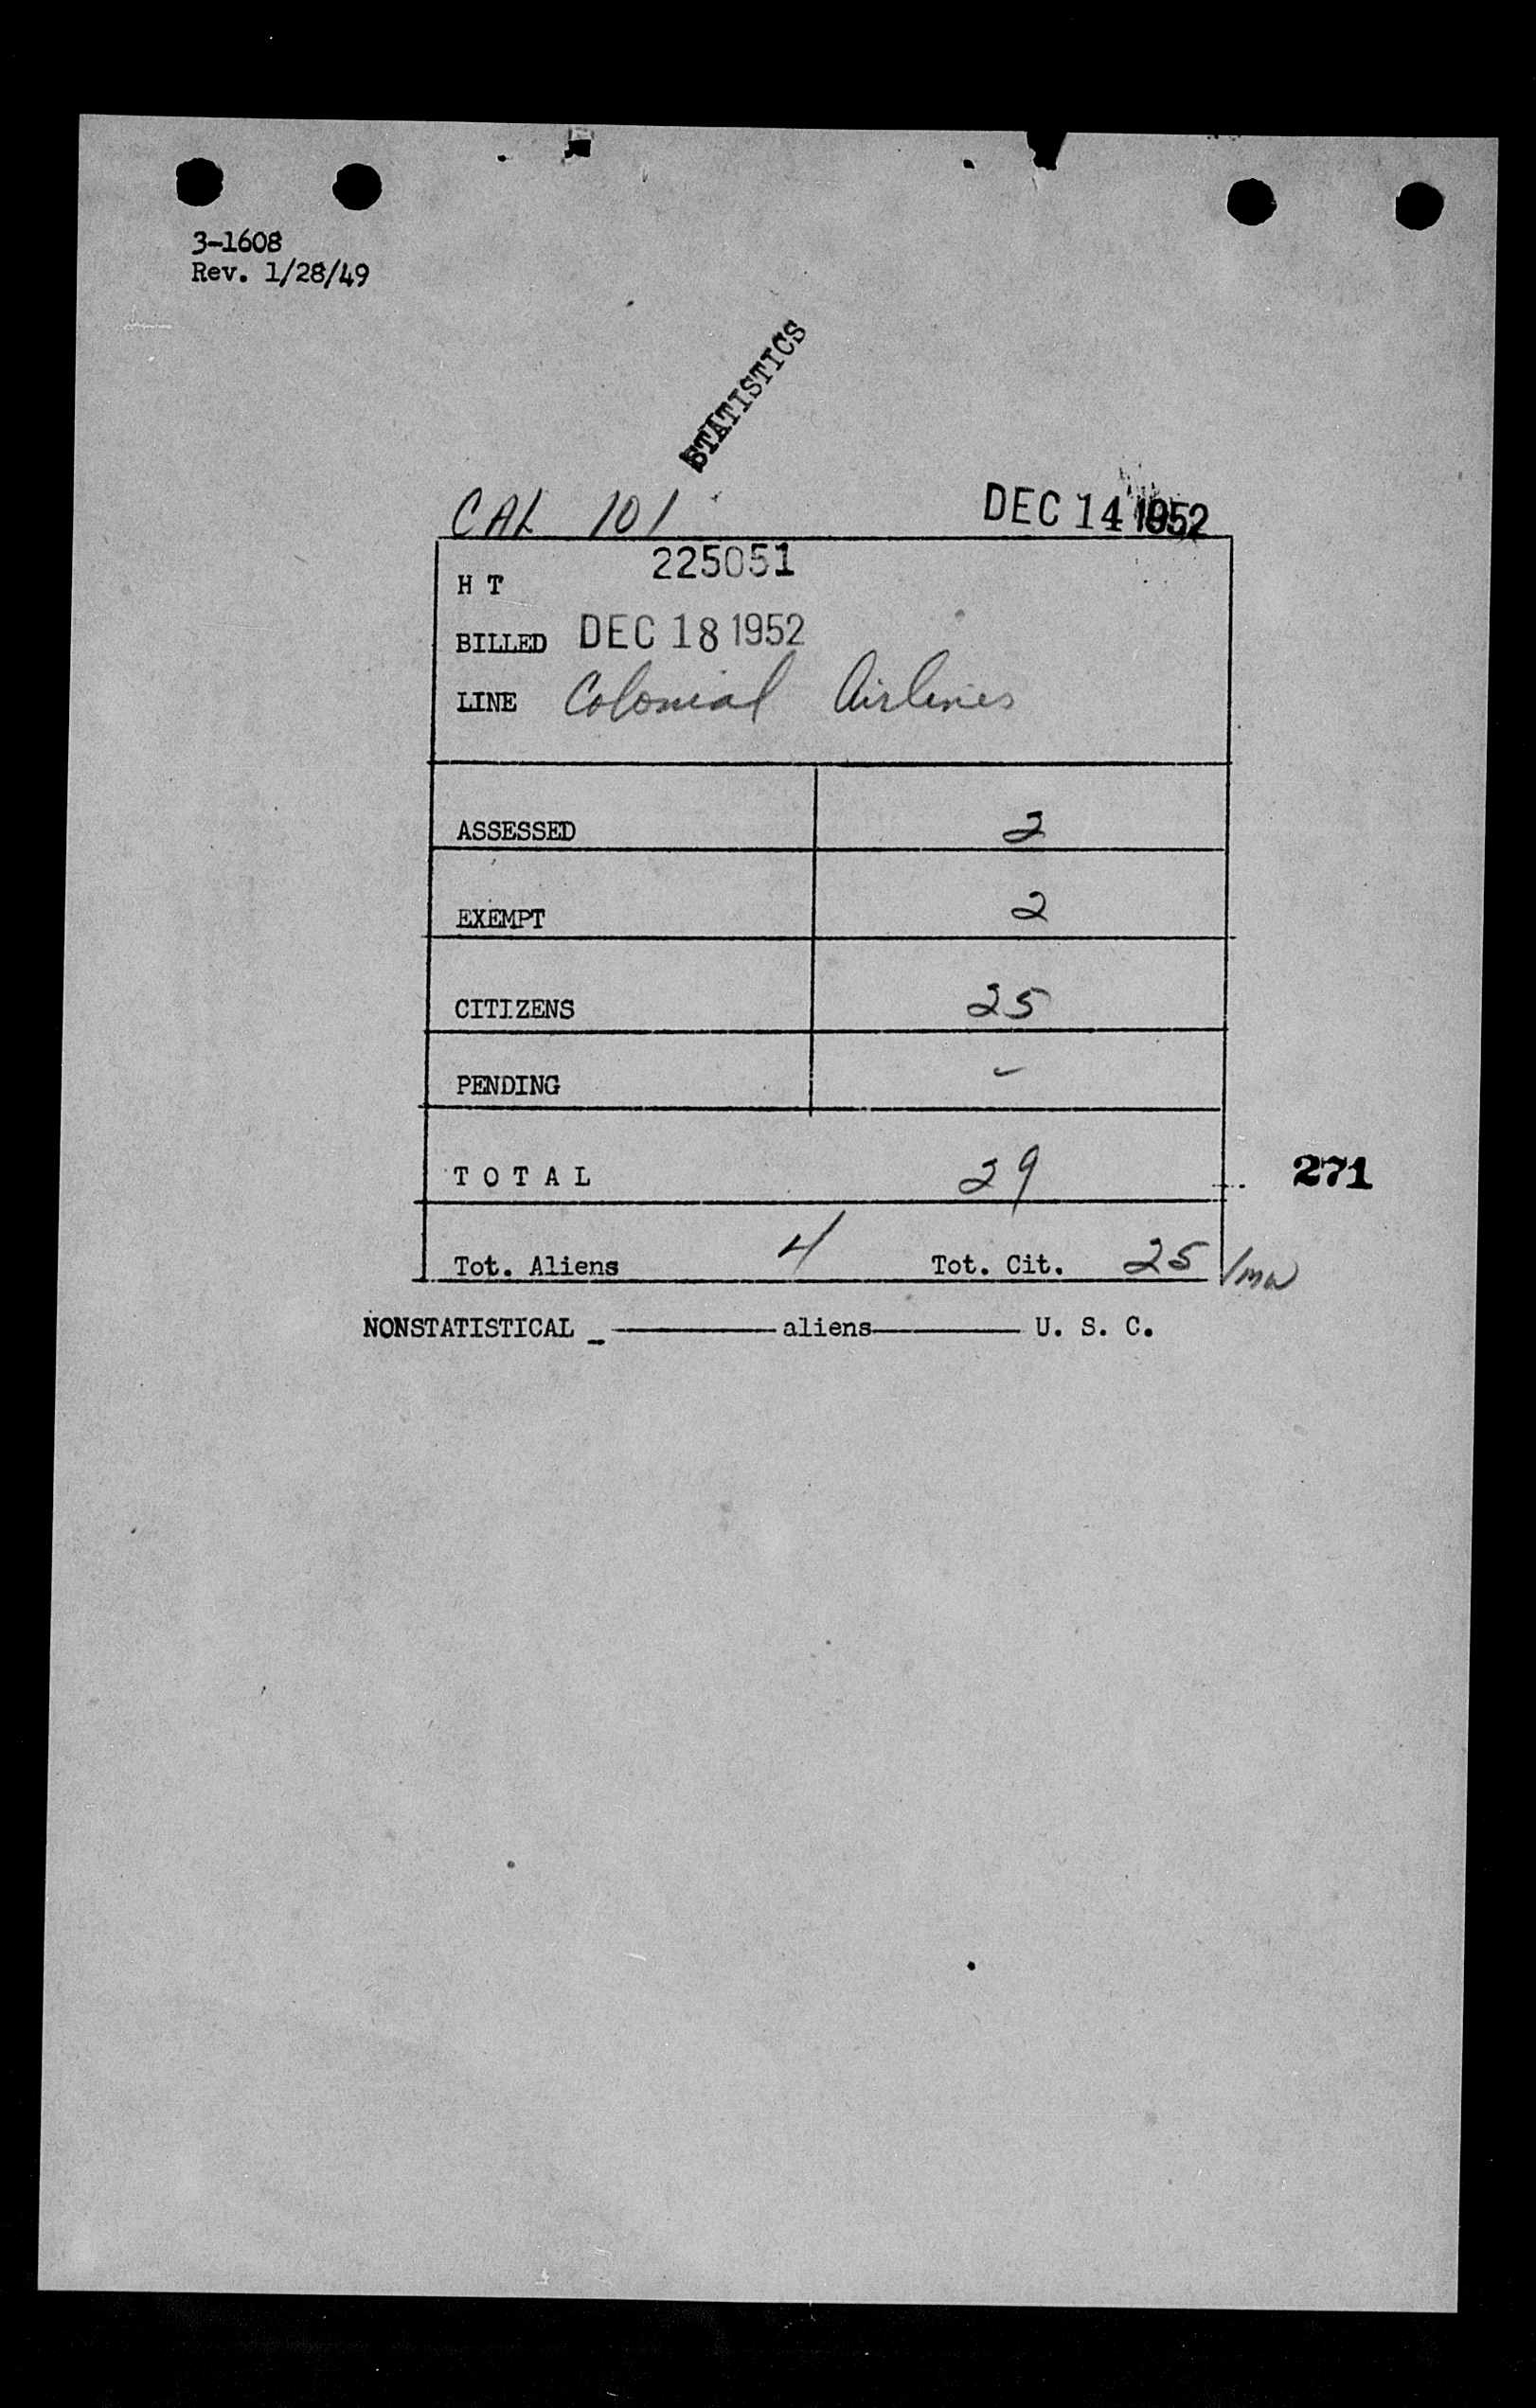 3-1608
Rev. 1/28/49
STATISTICS
CAL 101
DEC 14 1952
H T 225051
BILLED DEC 18 1952
LINE Colonial Airlines
ASSESSED 2
EXEMPT 2
CITIZENS 25
PENDING -
T O T A L 29
271
Tot. Aliens 4 Tot. Cit. 25 /mw
NONSTATISTICAL _ ———— aliens ———— U. S. C.